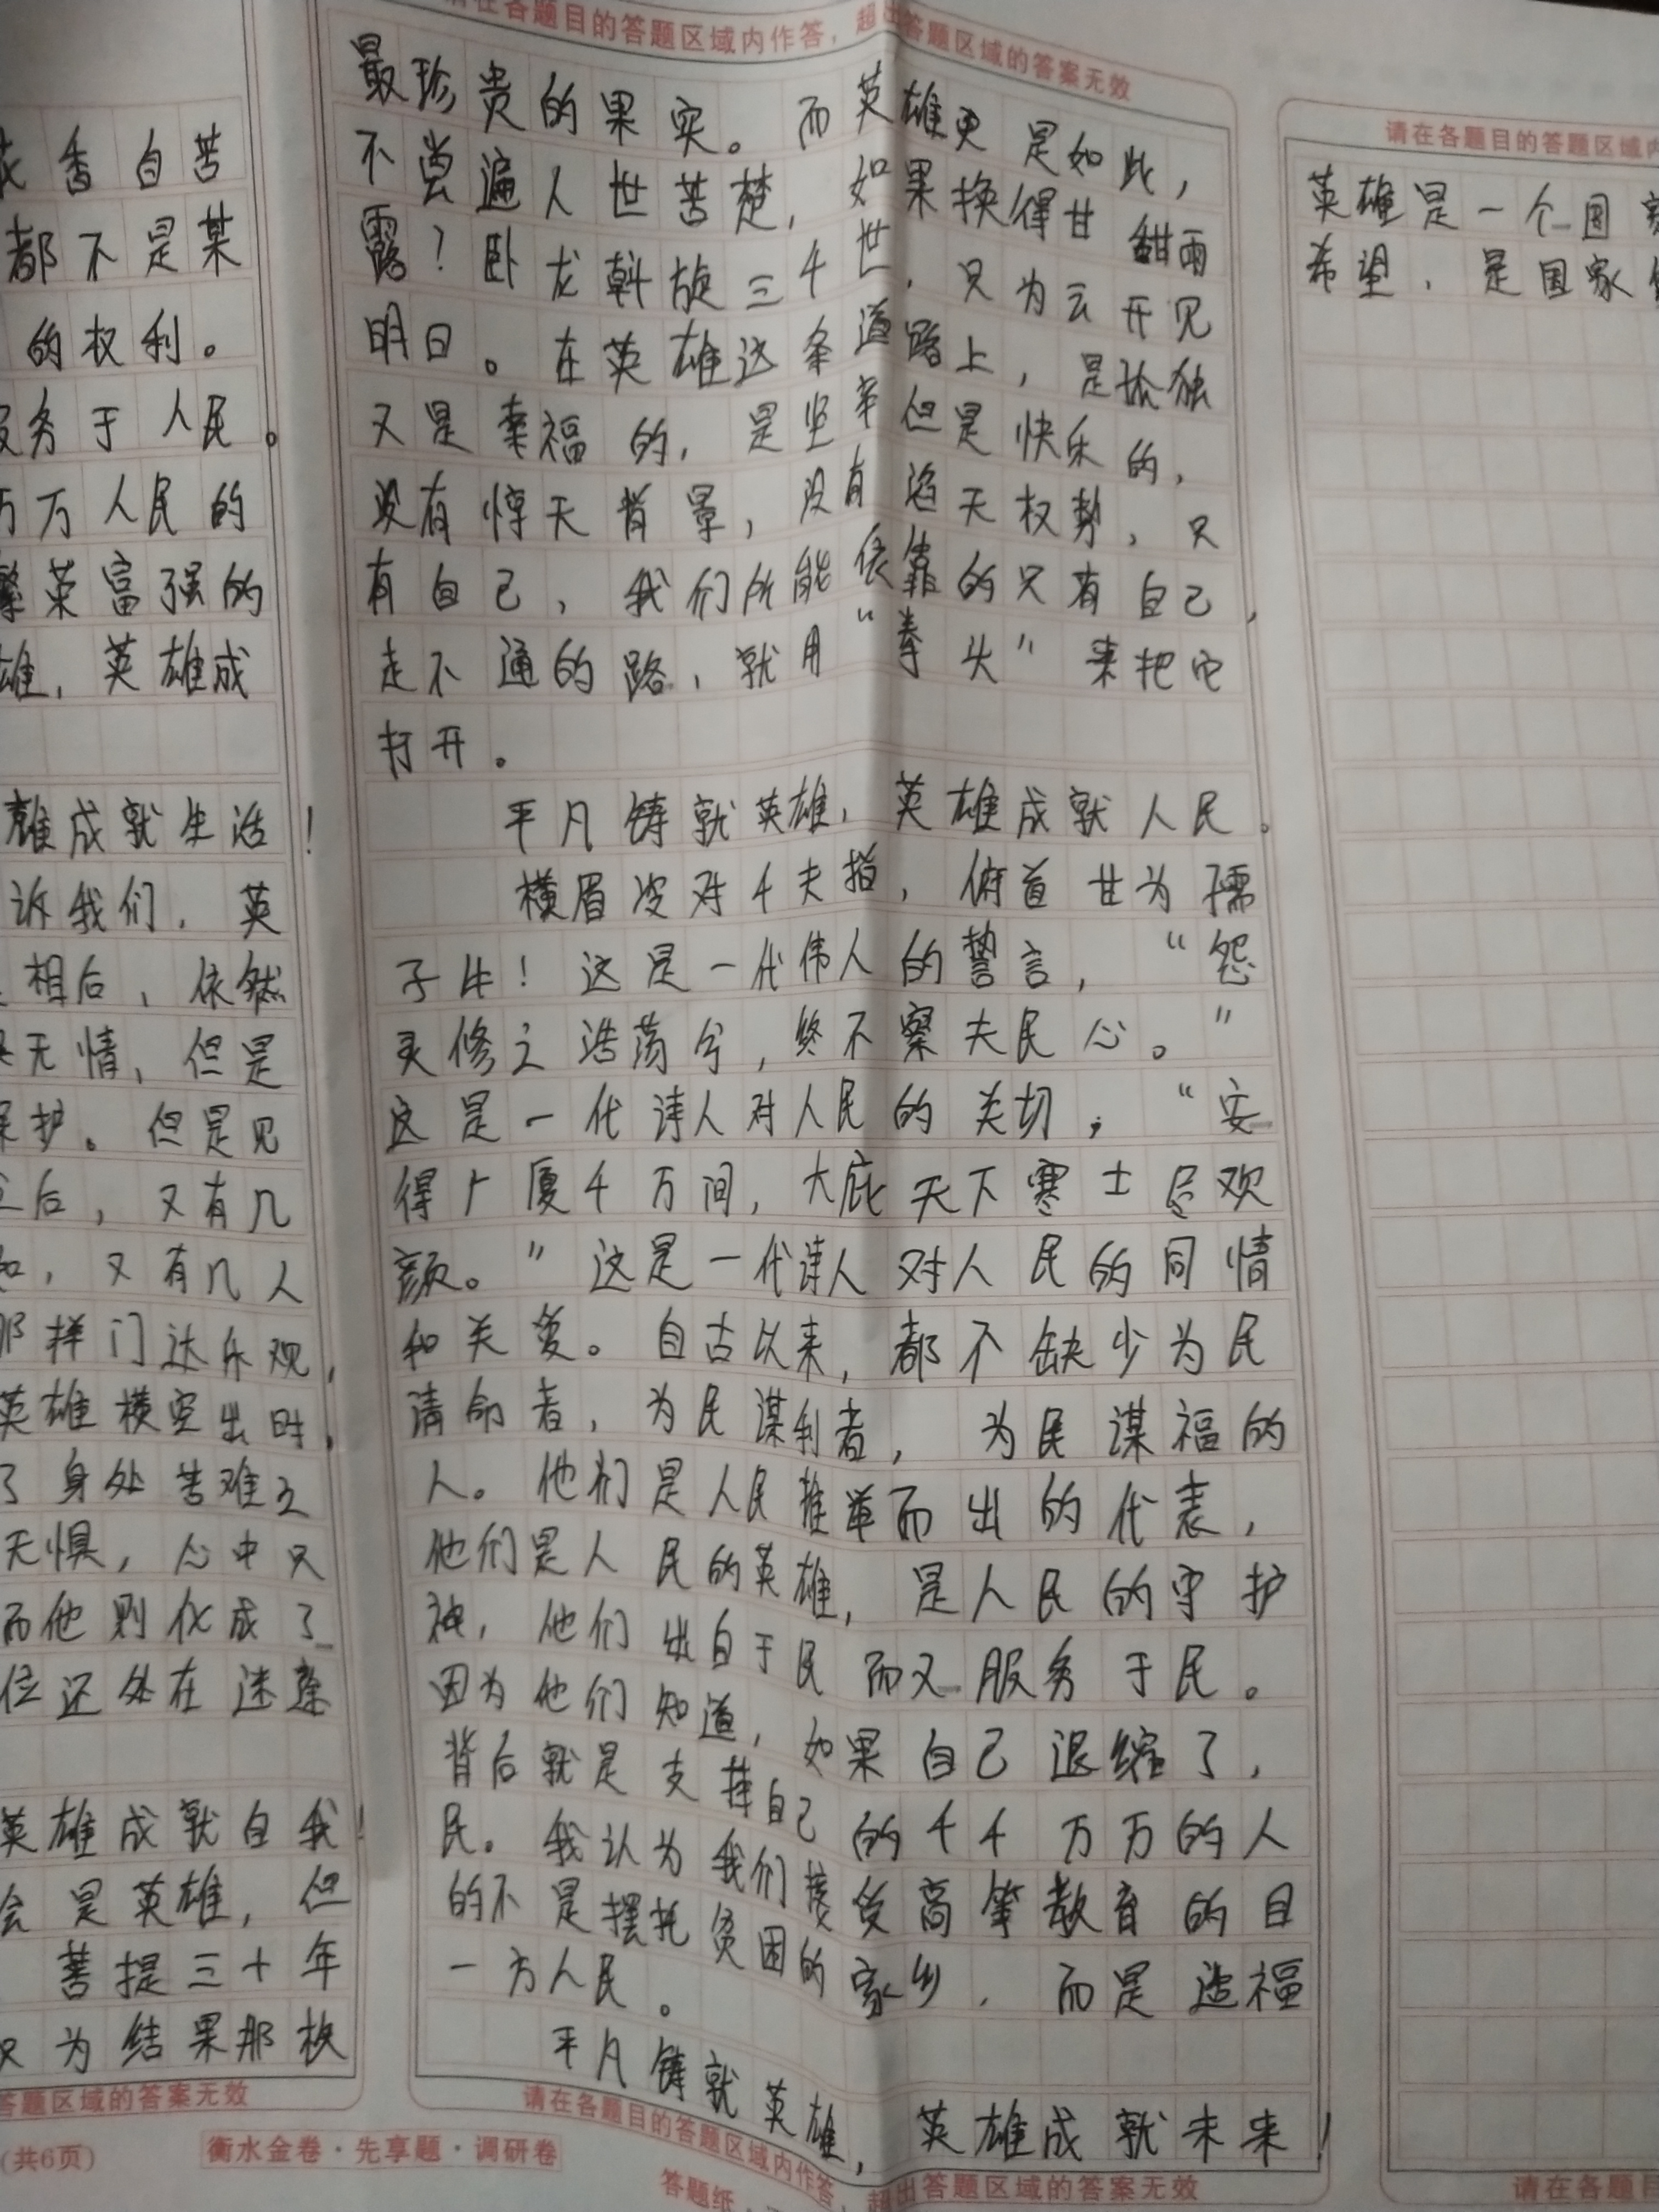 花香自苦
都不是某
的权利。
服务于人民。
万万人民的
繁荣富强的
雄，英雄成
雄成就生活！
诉我们，英
相后，依然
无情，但是
保护。但是见
之后，又有几
知，又有几人
那样门达乐观，
英雄横空出时，
了身处苦难之
无惧，心中只
而他则化成了
位还处在迷
英雄成就自我！
会是英雄，但
菩提三十年
只为结果那枚
答题区域的答案无效
(共6页)
衡水金卷·先享题·调研卷
请在各题目的答题区域内作答，超出答题区域的答案无效
最珍贵的果实。而英雄更是如此，
不尝遍人世苦楚，如果换得甘甜雨
露？卧龙斡旋三千世，只为云开见
明日。在英雄这条道路上，是孤独
又是幸福的，是坚牢但是快乐的，
没有惊天背景，没有滔天权势，只
有自己，我们所能依靠的只有自己，
走不通的路，就用“拳头”来把它
打开。
平凡铸就英雄，英雄成就人民。
横眉冷对千夫指，俯首甘为孺
子牛！这是一代伟人的誓言，“怨
灵修之浩荡兮，终不察夫民心。”
这是一代诗人对人民的关切；“安
得广厦千万间，大庇天下寒士尽欢
颜。”这是一代诗人对人民的同情
和关爱。自古以来，都不缺少为民
请命者，为民谋利者，为民谋福的
人。他们是人民推举而出的代表，
他们是人民的英雄，是人民的守护
神，他们出自于民而又服务于民。
因为他们知道，如果自己退缩了，
背后就是支撑自己的千千万万的人
民。我认为我们接受高等教育的目
的不是摆托贫困的家乡，而是造福
一方人民。
平凡铸就英雄，英雄成就未来！
请在各题目的答题区域内作答，超出答题区域的答案无效
答题纸
请在各题目的答题区域内
英雄是一个国家
希望，是国家
请在各题目